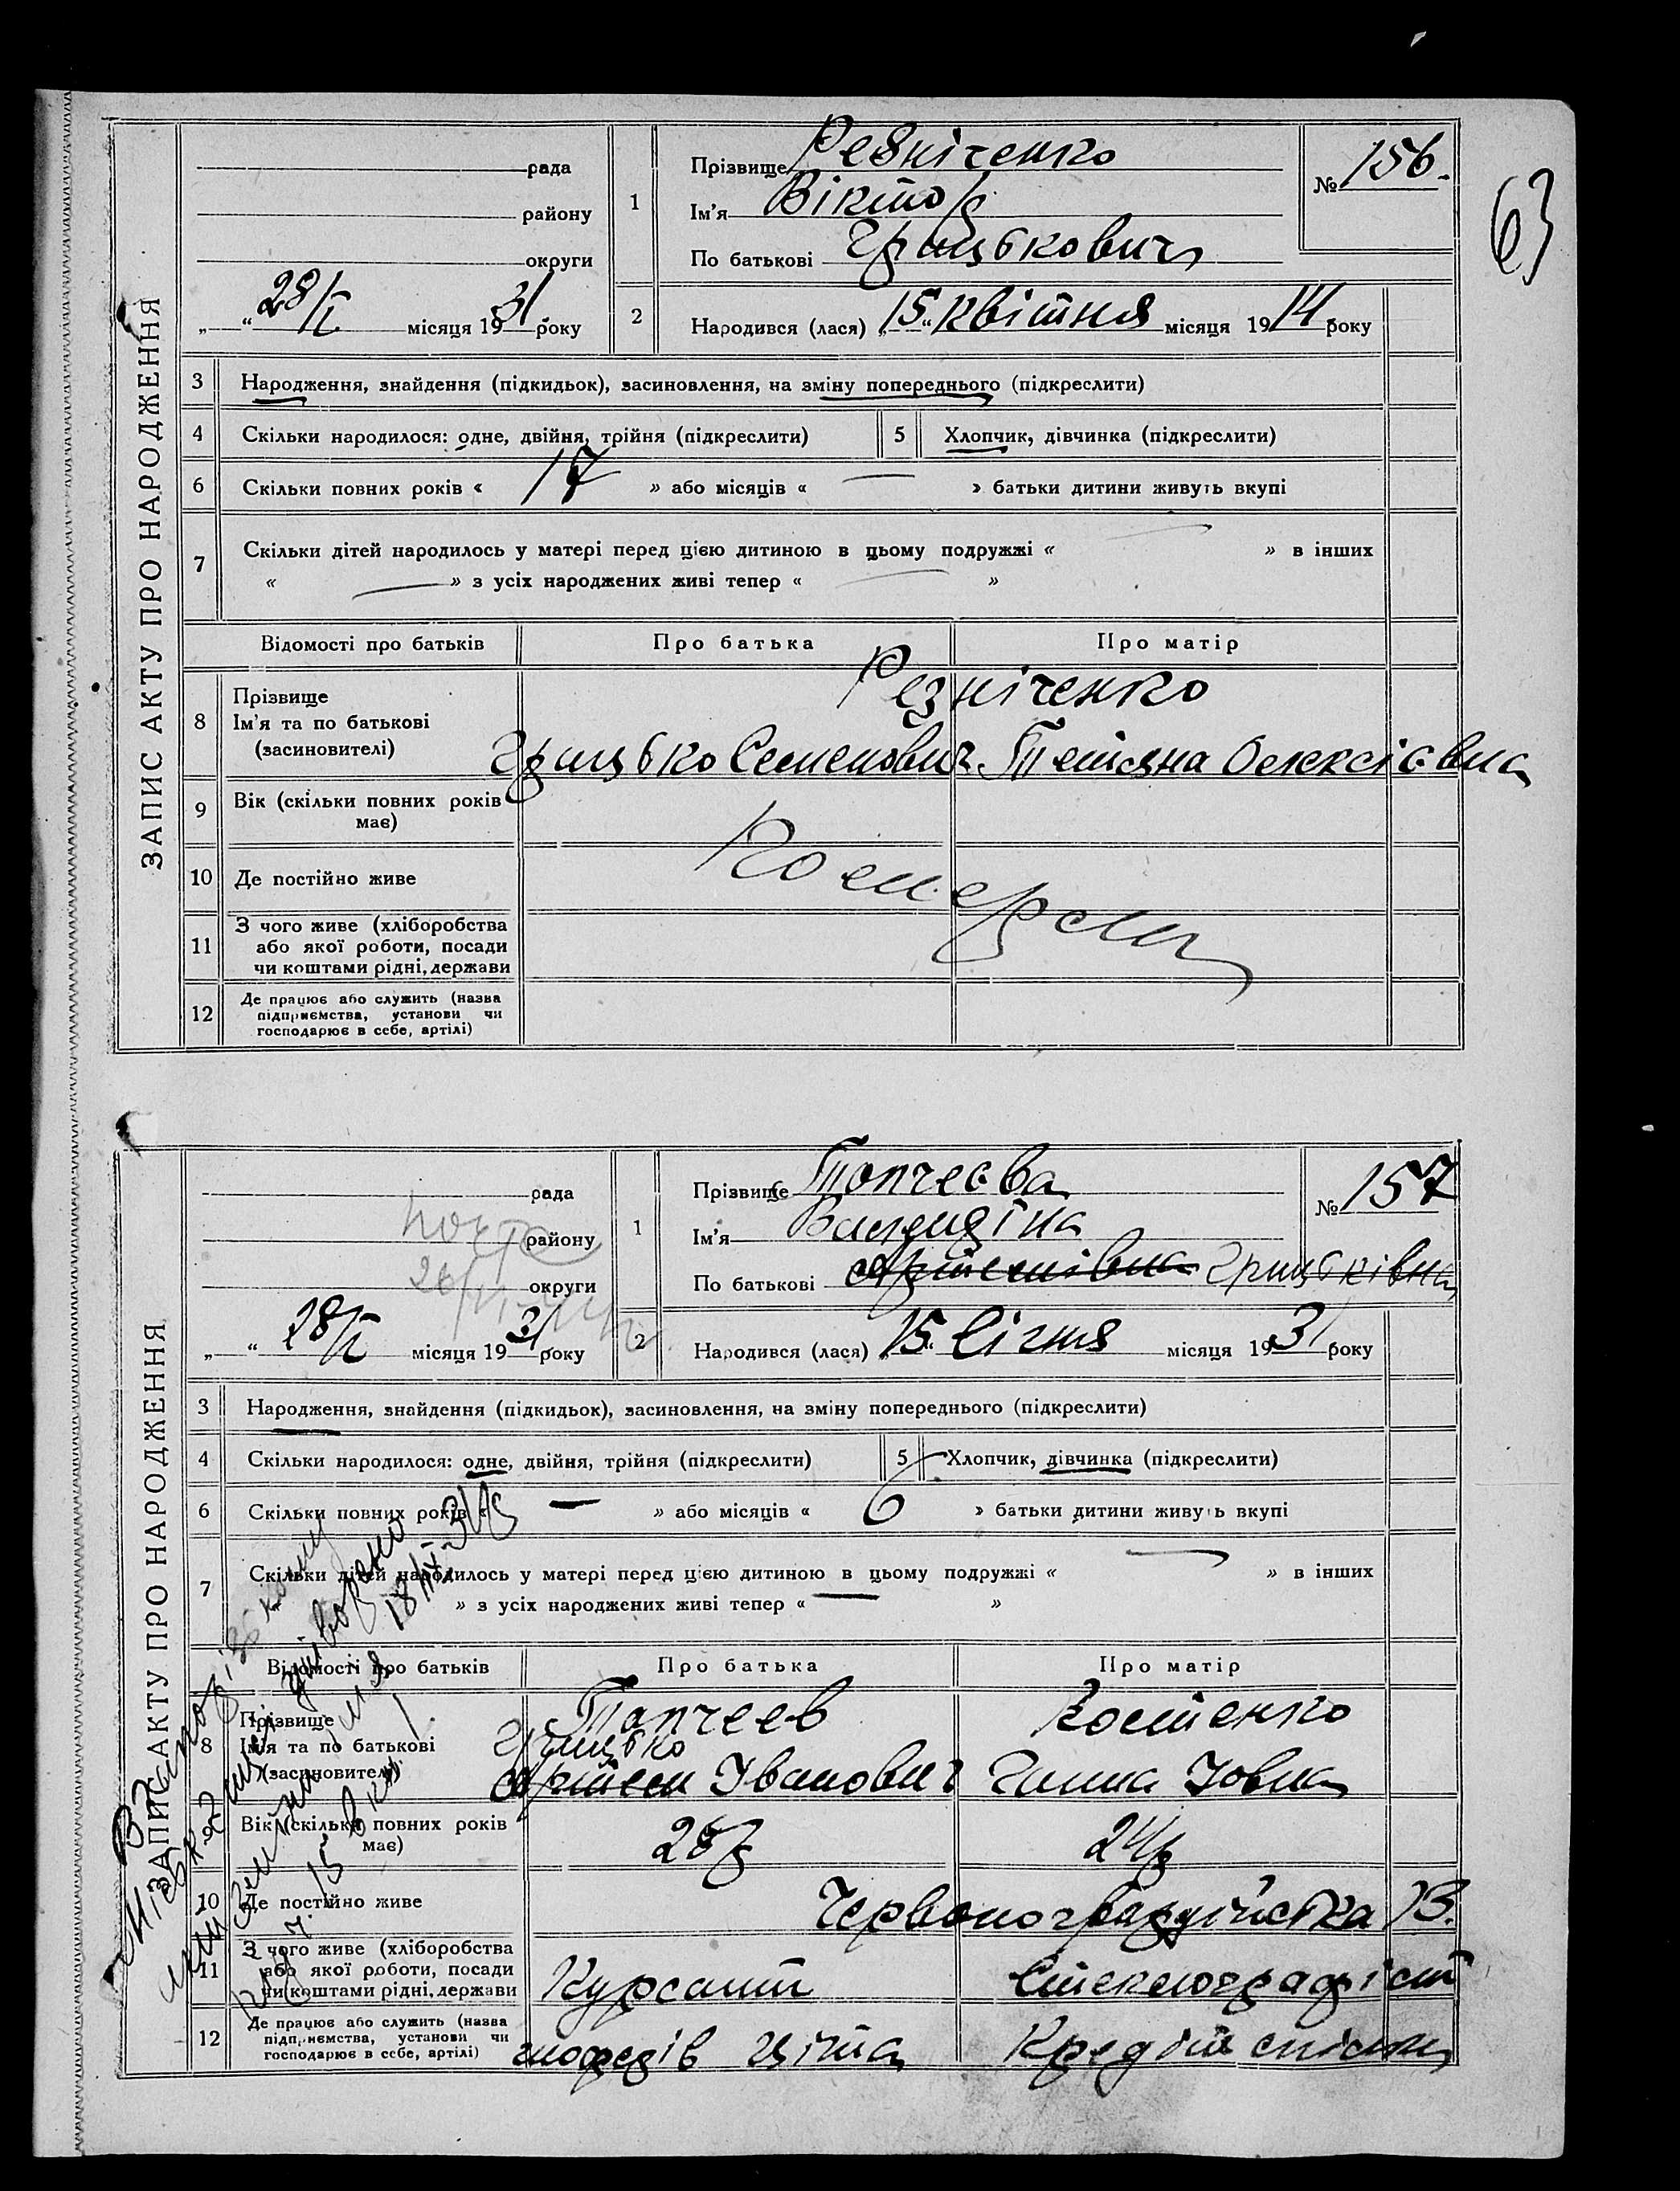 63
ЗАПИС АКТУ ПРО НАРОДЖЕННЯ
рада
району
округи
„ “ 28/V місяця 1931 року
1
Прізвище Резніченко
Ім'я Віктор
По батькові Грицькович
№ 156.
2
Народився (лася) „15“ квітня місяця 1914 року
3 Народження, знайдення (підкидьок), засиновлення, на зміну попереднього (підкреслити)
4 Скільки народилося: одне, двійня, трійня (підкреслити)
5 Хлопчик, дівчинка (підкреслити)
6 Скільки повних років « 17 » або місяців « — » батьки дитини живуть вкупі
7 Скільки дітей народилось у матері перед цією дитиною в цьому подружжі « — » в інших
« — » з усіх народжених живі тепер « — »
Відомості про батьків Про батька Про матір
8 Прізвище
Ім'я та по батькові
(засиновителі)
Резніченко
Грицько Семенович Тетяна Олексієвна
9 Вік (скільки повних років
має)
10 Де постійно живе
11 З чого живе (хліборобства
або якої роботи, посади
чи коштами рідні, держави
12 Де працює або служить (назва
підприємства, установи чи
господарює в себе, артілі)
ЗАПИС АКТУ ПРО НАРОДЖЕННЯ
рада
району
округи
„ “ 28/V місяця 1931 року
1
Прізвище Топчеєва
Ім'я
По батькові Артемівна Грицьківна
№ 157
2
Народився (лася) „15“ Січня місяця 1931 року
3 Народження, знайдення (підкидьок), засиновлення, на зміну попереднього (підкреслити)
4 Скільки народилося: одне, двійня, трійня (підкреслити)
5 Хлопчик, дівчинка (підкреслити)
6 Скільки повних років « — » або місяців « 6 » батьки дитини живуть вкупі
7 Скільки дітей народилось у матері перед цією дитиною в цьому подружжі « — » в інших
» з усіх народжених живі тепер « — »
Відомості про батьків Про батька Про матір
8 Прізвище
Ім'я та по батькові
(засиновителі)
Топчеев Костенко
Грицько
Артем Іванович Ганна Іовна
9 Вік (скільки повних років
має)
28р 24р
10 Де постійно живе
Червоногвардійська 13.
11 З чого живе (хліборобства
або якої роботи, посади
чи коштами рідні, держави
Курсант
12 Де працює або служить (назва
підприємства, установи чи
господарює в себе, артілі)
Кредіт спілки